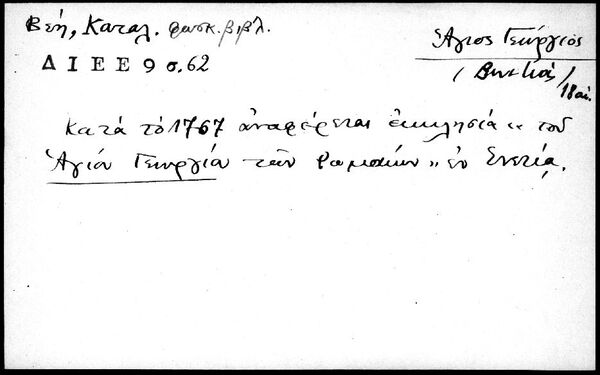 Βέη, Καταλ. φωσκ. βιβλ.
Δ Ι Ε Ε 9 σ. 62
Ἅγιος Γεώργιος
(Βενετίας) 18 αἰ.
Κατὰ τὸ 1767 ἀναφέρεται ἐκκλησία « τοῦ
Ἁγίου Γεωργίου τῶν Ρωμαίων » ἐν Ἑνετίᾳ.